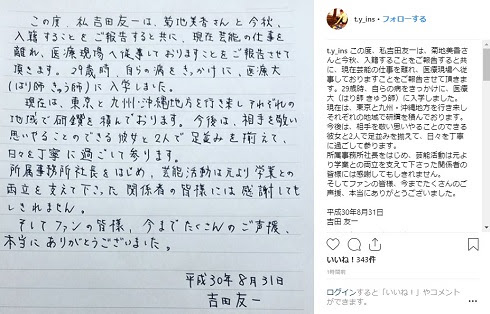 この度、私吉田友一は、菊地美香さんと今秋、
入籍することをご報告すると共に、現在芸能の仕事を
離れ、医療現場へ従事しておりますことをご報告させて
頂きます。29歳時、自らの病をきっかけに、医療大
(はり師 きゅう師)に入学しました。
現在は、東京と九州・沖縄地方を行き来しそれぞれの
地域で研鑽を積んでおります。今後は、相手を敬い
思いやることのできる彼女と2人で足並みを揃えて、
日々を丁寧に過ごして参ります。
所属事務所社長をはじめ、芸能活動は元より学業との
両立を支えて下さった関係者の皆様には感謝しても
しきれません。
そしてファンの皆様、今までたくさんのご声援、
本当にありがとうございました。
平成30年8月31日
吉田友一
t.y_ins・フォローする
t.y_ins この度、私吉田友一は、菊地美香さ
んと今秋、入籍することをご報告すると共
に、現在芸能の仕事を離れ、医療現場へ従
事しておりますことをご報告させて頂きま
す。29歳時、自らの病をきっかけに、医療
大（はり師 きゅう師）に入学しました。
現在は、東京と九州・沖縄地方を行き来し
それぞれの地域で研鑽を積んでおります。
今後は、相手を敬い思いやることのできる
彼女と2人で足並みを揃えて、日々を丁寧
に過ごして参ります。
所属事務所社長をはじめ、芸能活動は元よ
り学業との両立を支えて下さった関係者の
皆様には感謝してもしきれません。
そしてファンの皆様、今までたくさんのご
声援、本当にありがとうございました。
平成30年8月31日
吉田 友一
いいね！343件
1時間前
ログインすると「いいね！」やコメント
ができます。